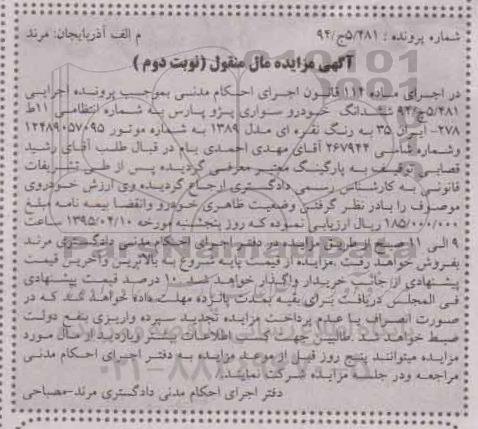 شماره پرونده : ۵/۴۸۱ج/۹۴ م الف آذربایجان: مرند
آگهی مزایده مال منقول (نوبت دوم )
در اجرای ماده ۱۱۴ قانون اجرای احکام مدنی بموجب پرونده اجرایی
۵/۴۸۱ج/۹۴ ششدانگ خودرو سواری پژو پارس به شماره انتظامی ۱۱ط
۲۷۸- ایران ۳۵ به رنگ نقره ای مدل ۱۳۸۹ به شماره موتور ۱۲۴۸۹۰۵۷۰۹۵
وشماره شاسی ۲۶۷۹۴۴ آقای مهدی احمدی بام در قبال طلب آقای رشید
قصابی توقیف به پارگینگ معتبر معرفی گردیده پس از طی تشریفات
قانونی به کارشناس رسمی دادگستری ارجاع گردیده وی ارزش خودروی
موصوف را بادر نظر گرفتن وضعیت ظاهری خودرو وانقضا بیمه نامه مبلغ
۱۸۵/۰۰۰/۰۰۰ ریال ارزیابی نموده که روز پنجشنبه مورخه ۱۳۹۵/۰۴/۱۰ ساعت
۹ الی ۱۱ صبح از طریق مزایده در دفتر اجرای احکام مدنی دادگستری مرند
بفروش خواهد رفت .مزایده از قیمت پایه شروع به بالاترین وآخرین قیمت
پیشنهادی از جانب خریدار واگذار خواهد شد ۱۰ درصد قیمت پیشنهادی
فی المجلس دریافت برای بقیه بمدت پانزده مهلت داده خواهد شد که در
صورت انصراف یا عدم پرداخت مزایده تجدید سپرده واریزی بنفع دولت
ضبط خواهد شد .طالبین جهت کسب اطلاعات بیشتر وبازدید از مال مورد
مزایده میتوانند پنج روز قبل از موعد مزایده به دفتر اجرای احکام مدنی
مراجعه ودر جلسه مزایده شرکت نمایند./
دفتر اجرای احکام مدنی دادگستری مرند-مصباحی